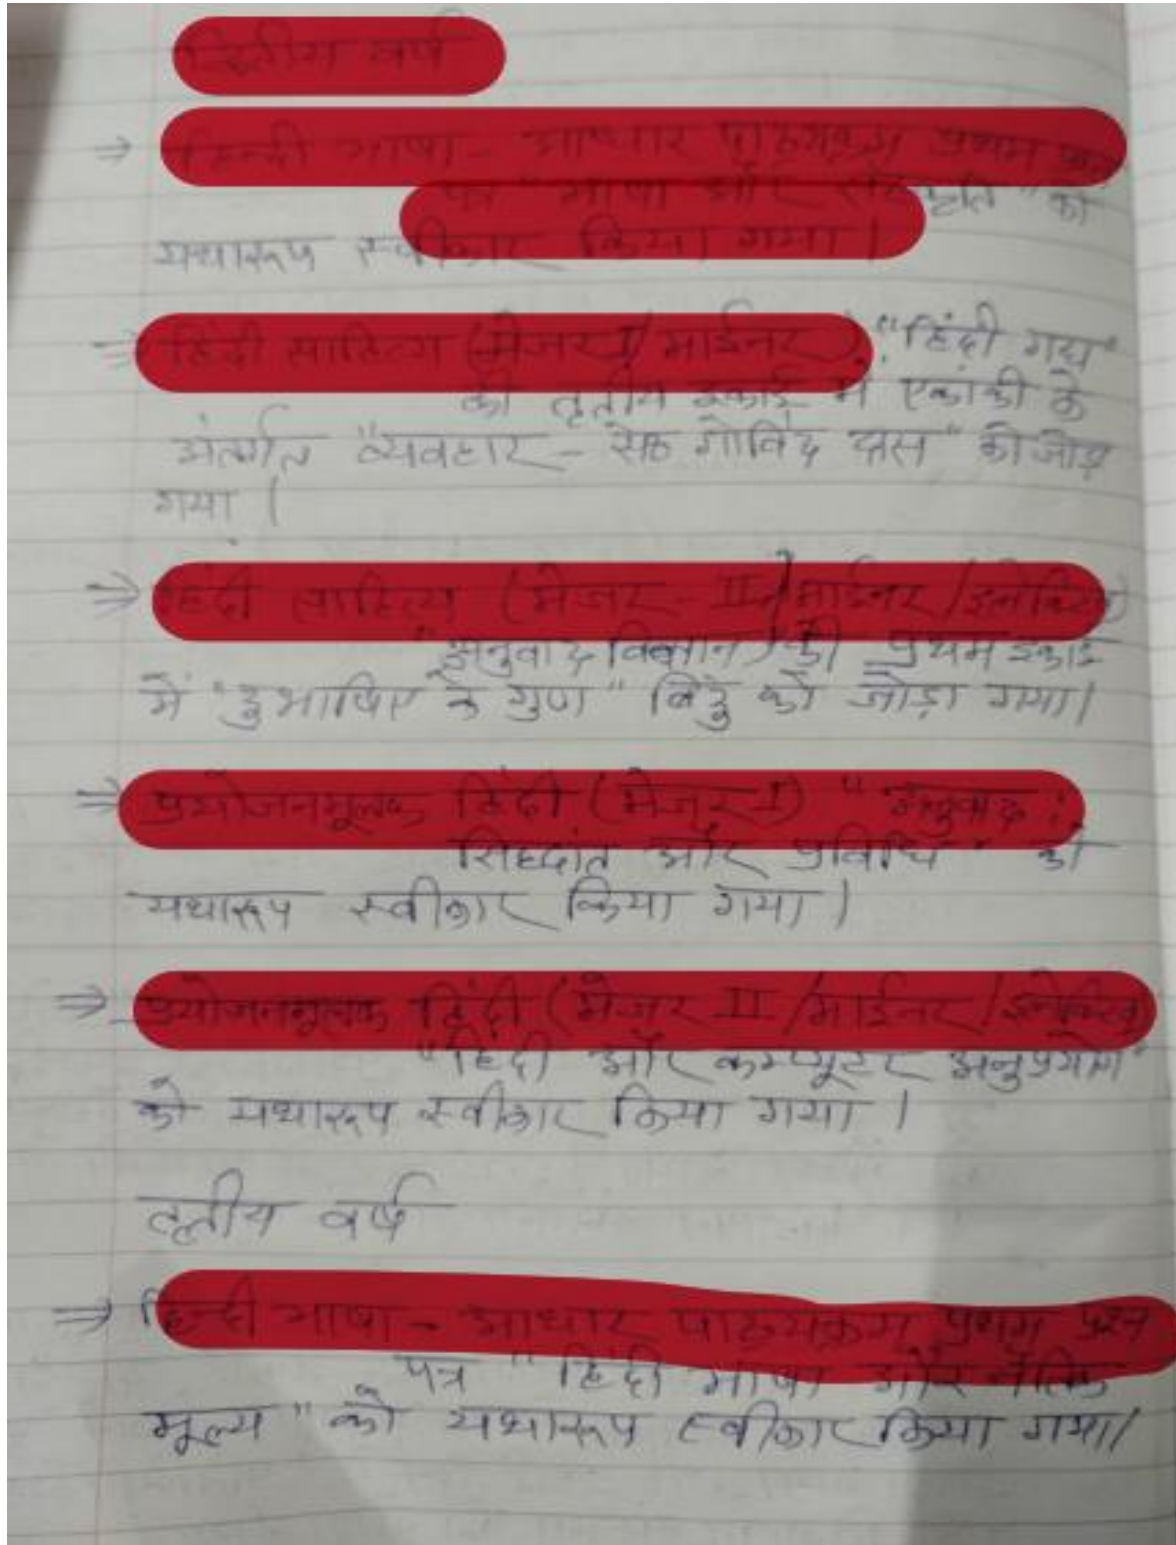 द्वितीय वर्ष
⇒ हिन्दी भाषा - आधार पाठ्यक्रम प्रथम प्रश्न
"भाषा और संस्कृति" को
यथारूप स्वीकार किया गया।
⇒ हिंदी साहित्य (मेजर I/ माईनर) "हिंदी गद्य"
की तृतीय इकाई में एकांकी के
अंतर्गत "व्यवहार - सेठ गोविंद दास" को जोड़ा
गया।
⇒ हिंदी साहित्य (मेजर - II / माईनर / इलेक्टिव)
(अनुवाद विज्ञान) की प्रथम इकाई
में "दुभाषिए के गुण" बिंदु को जोड़ा गया।
⇒ प्रयोजनमूलक हिंदी (मेजर I) "अनुवाद :
सिद्धांत और प्रविधि" को
यथारूप स्वीकार किया गया।
⇒ प्रयोजनमूलक हिंदी (मेजर II / माईनर / इलेक्टिव)
"हिंदी और कम्प्यूटर अनुप्रयोग"
को यथारूप स्वीकार किया गया।
तृतीय वर्ष
⇒ हिन्दी भाषा - आधार पाठ्यक्रम प्रथम प्रश्न
पत्र "हिंदी भाषा और नैतिक
मूल्य" को यथारूप स्वीकार किया गया।